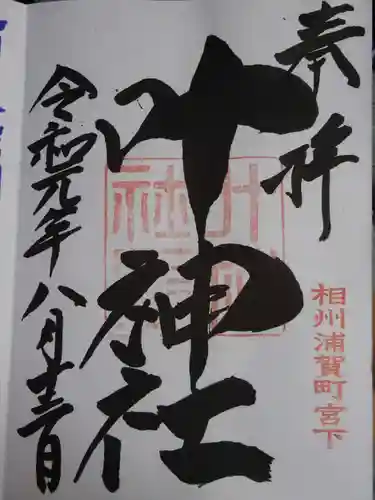 奉拝
相州浦賀町宮下
叶神社
令和元年八月十三日